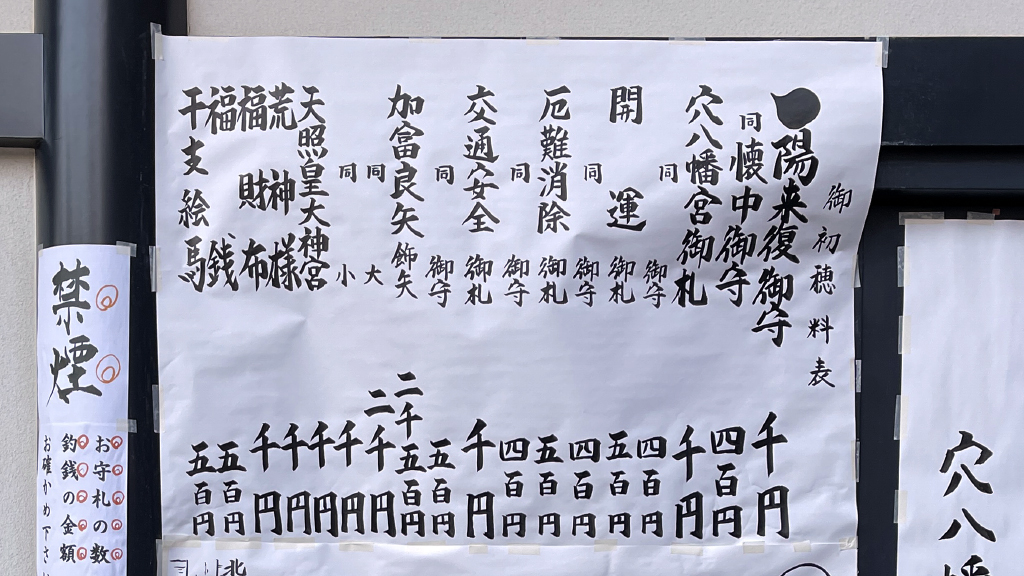 穴八
御初穂料表
一陽来復御守 千円
同懐中御守 四百円
穴八幡宮御札 千円
同 御守 四百円
開運 御札 五百円
同 御守 四百円
厄難消除 御札 五百円
同 御守 四百円
交通安全 御札 千円
同 御守 五百円
加富良矢 飾矢 二千五百円
同 大 二千円
同 小 千円
天照皇大神宮 千円
荒神様 千円
福財布 千円
福銭 五百円
干支絵馬 五百円
北
禁煙
お守札の数
釣銭の金額
お確かめ下さ